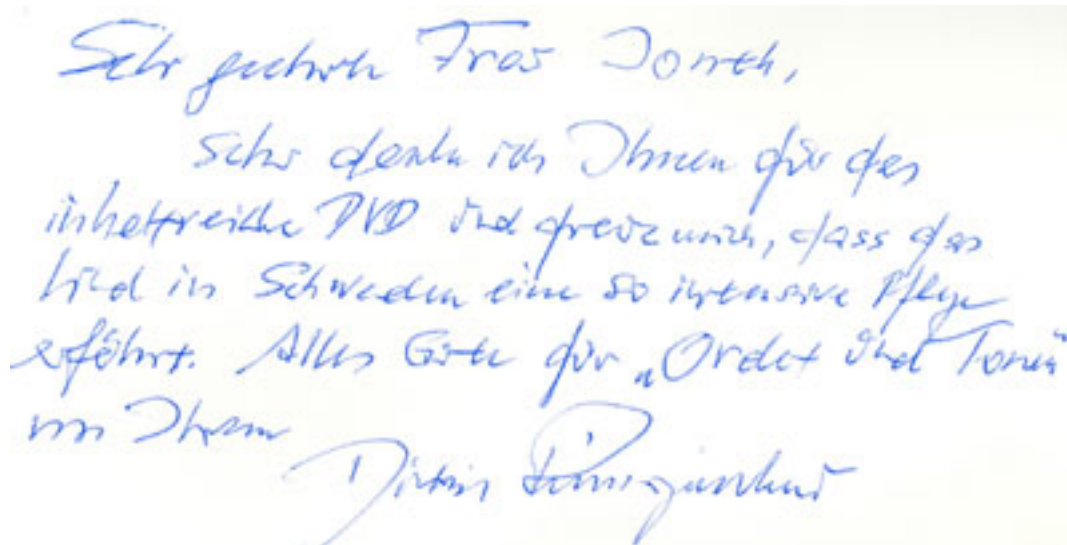 Sehr geehrte Frau
sehr danke ich Ihnen für das
inhaltreiche DVD und freue mich, dass das
Lied in Schweden eine so intensive Pflege
erfährt. Alles Gute für „Ordet und Tonen“
von Ihrem